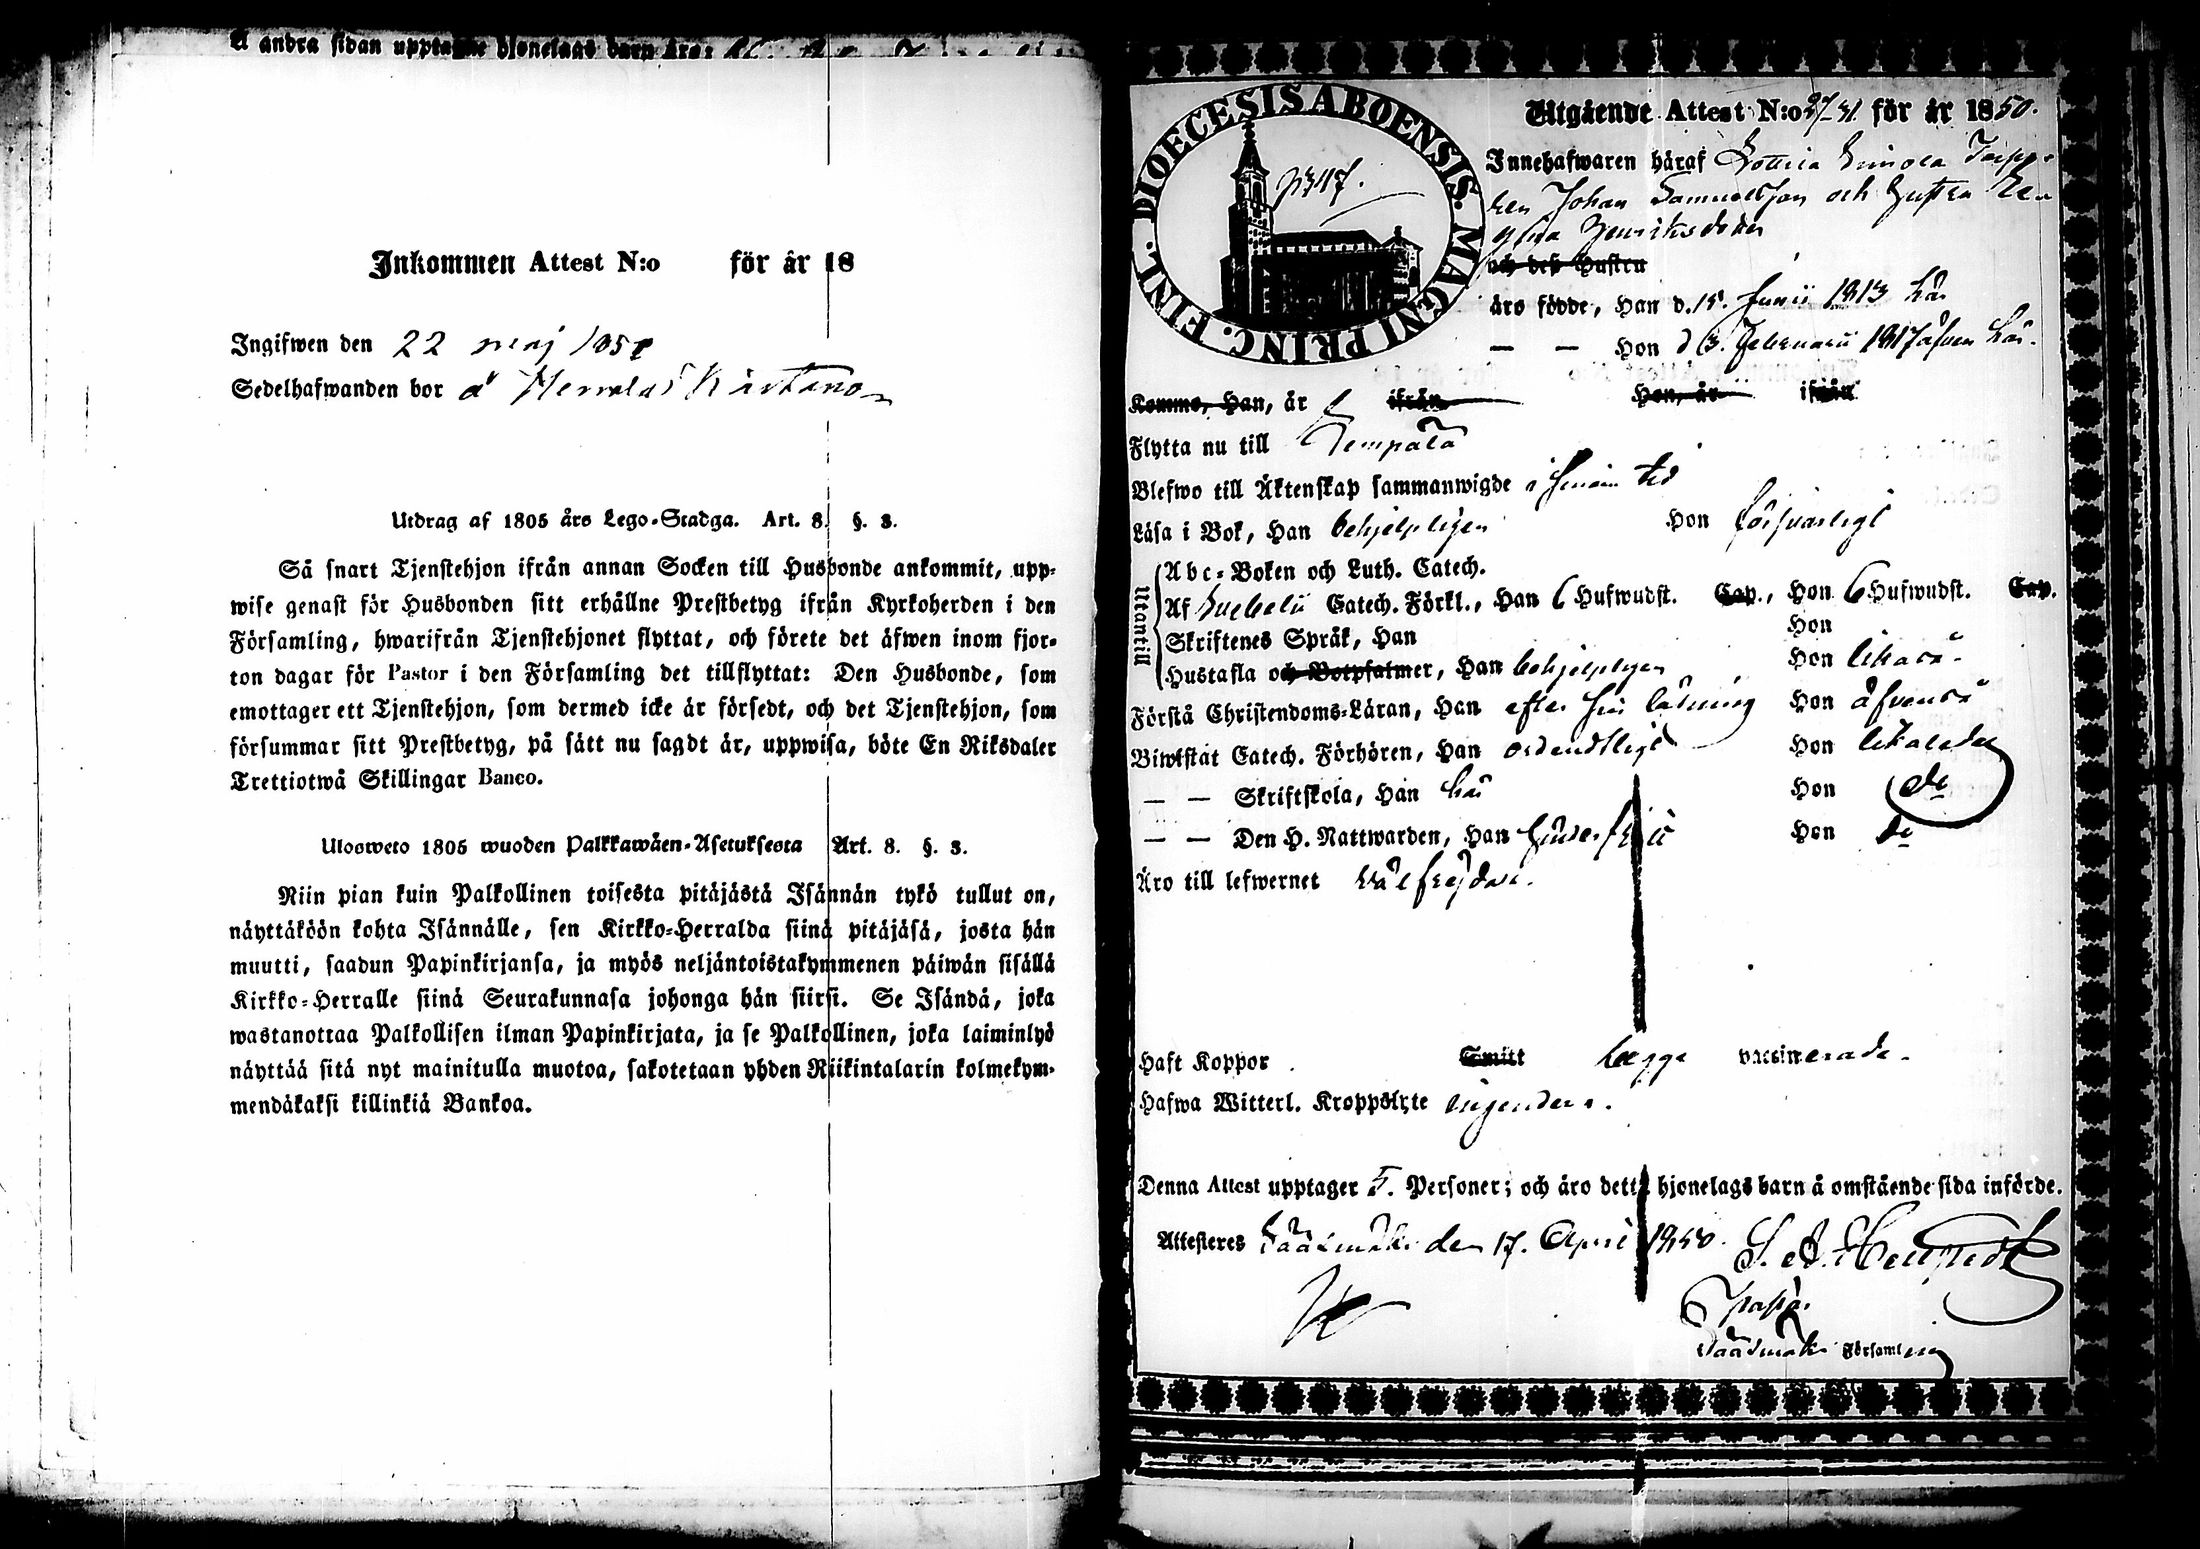 Å andra sidan upptagne hjonelags barn äro:
Inkommen Attest N:o för år 18
Ingifwen den 22 maj 185
Sedelhafwanden bor å
Utdrag af 1805 års Lego-Stadga. Art. 8. §. 3.
Så snart Tjenstehjon ifrån annan Socken till Husbonde ankommit, upp-
wise genast för Husbonden sitt erhållne Prestbetyg ifrån Kyrkoherden i den
Församling, hwarifrån Tjenstehjonet flyttat, och förete det äfwen inom fjor-
ton dagar för Pastor i den Församling det tillflyttat: Den Husbonde, som
emottager ett Tjenstehjon, som dermed icke är försedt, och det Tjenstehjon, som
försummar sitt Prestbetyg, på sätt nu sagdt är, uppwisa, böte En Riksdaler
Trettiotwå Skillingar Banco.
Ulosweto 1805 wuoden Palkkawäen-Asetuksesta Art. 8. §. 3.
Niin pian kuin Palkollinen toisesta pitäjästä Isännän tykö tullut on,
näyttäköön kohta Isännälle, sen Kirkko-Herralda siinä pitäjäsä, josta hän
muutti, saadun Papinkirjansa, ja myös neljäntoistakymmenen päiwän sisällä
Kirkko-Herralle siinä Seurakunnasa johonga hän siirsi. Se Isändä, joka
wastanottaa Palkollisen ilman Papinkirjata, ja se Palkollinen, joka laiminlyö
näyttää sitä nyt mainitulla muotoa, sakotetaan yhden Riikintalarin kolmekym-
mendäkaksi killinkiä Bankoa.
DIOECESIS ABOENSIS. MAGNI PRINC. FINL.
p 317.
Utgående Attest N:o för år 1850.
Innehafwaren häraf
Johan Samuelsson och Gustva Re-
gina Henriksdoter
och deß Hustru
äro födde, Han d. 15. Junii 1813 här
— — Hon d 3. Februarii 1817 äfven här.
Komme, Han, år ifrån Hon, år ifrån
Flytta nu till Lempälä
Blefwo till Äktenskap sammanwigde i sinom tid
Läsa i Bok, Han behjelpligen Hon försvarligt
Utantill
Abc-Boken och Luth. Catech.
Af Svebelii Catech. Förkl., Han 6 Hufwudst. Cap., Hon 6 Hufwudst. Cap.
Skriftenes Språk, Han Hon
Hustafla och Botpsalmer, Han behjelpligen Hon likaså
Förstå Christendoms-Läran, Han efter sin läsning Hon äfvenså
Biwistat Catech. Förhören, Han ordentligt Hon likaledes
— — Skriftskola, Han här Hon do
— — Den H. Nattwarden, Han Hon do
Äro till lefwernet välfrejdade.
Haft Koppor Smitt begge vaccinerade.
Hafwa Witterl. Kroppslyte ingendera.
Denna Attest upptager 5. Personer; och äro detta hjonelags barn å omstående sida införde.
Attesteres Sääksmäki den 17. April 1850.
Sääksmäki Församling